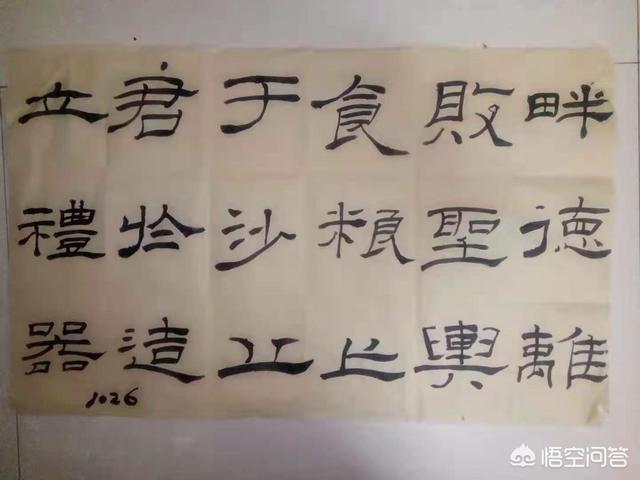 畔德離
敗聖輿
食粮亡
于沙丘
君於造
立禮器
1026
悟空问答